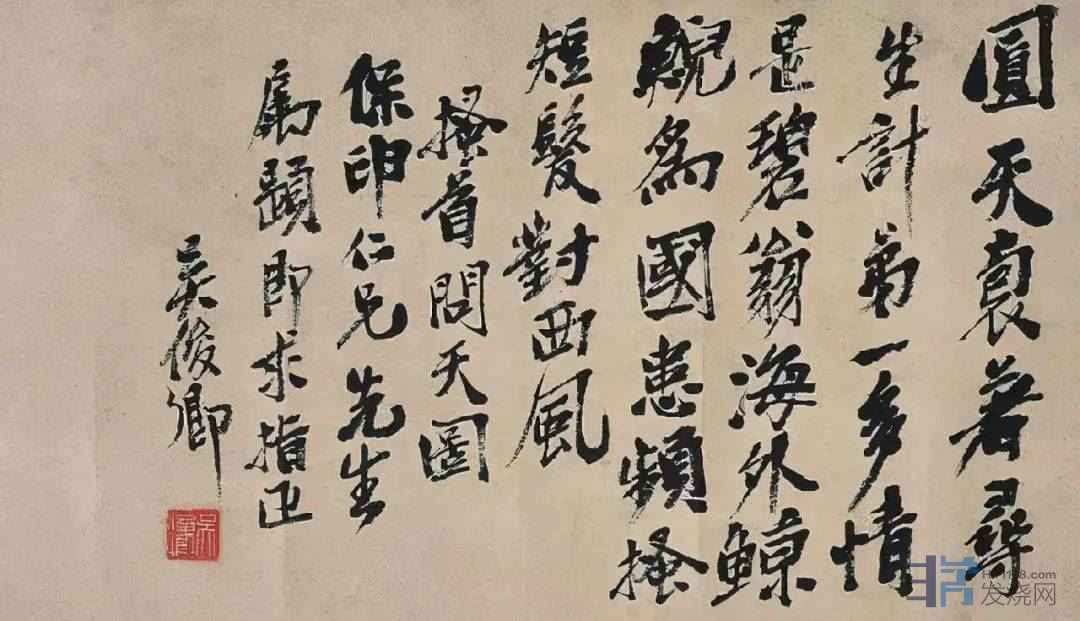 圓天裏著尋
生計弟一多情
是碧翁海外鯨
鯢為國患頻搔
短髮對西風
搔首問天圖
保印仁兄先生
属題即求指正
吳俊卿
发烧网